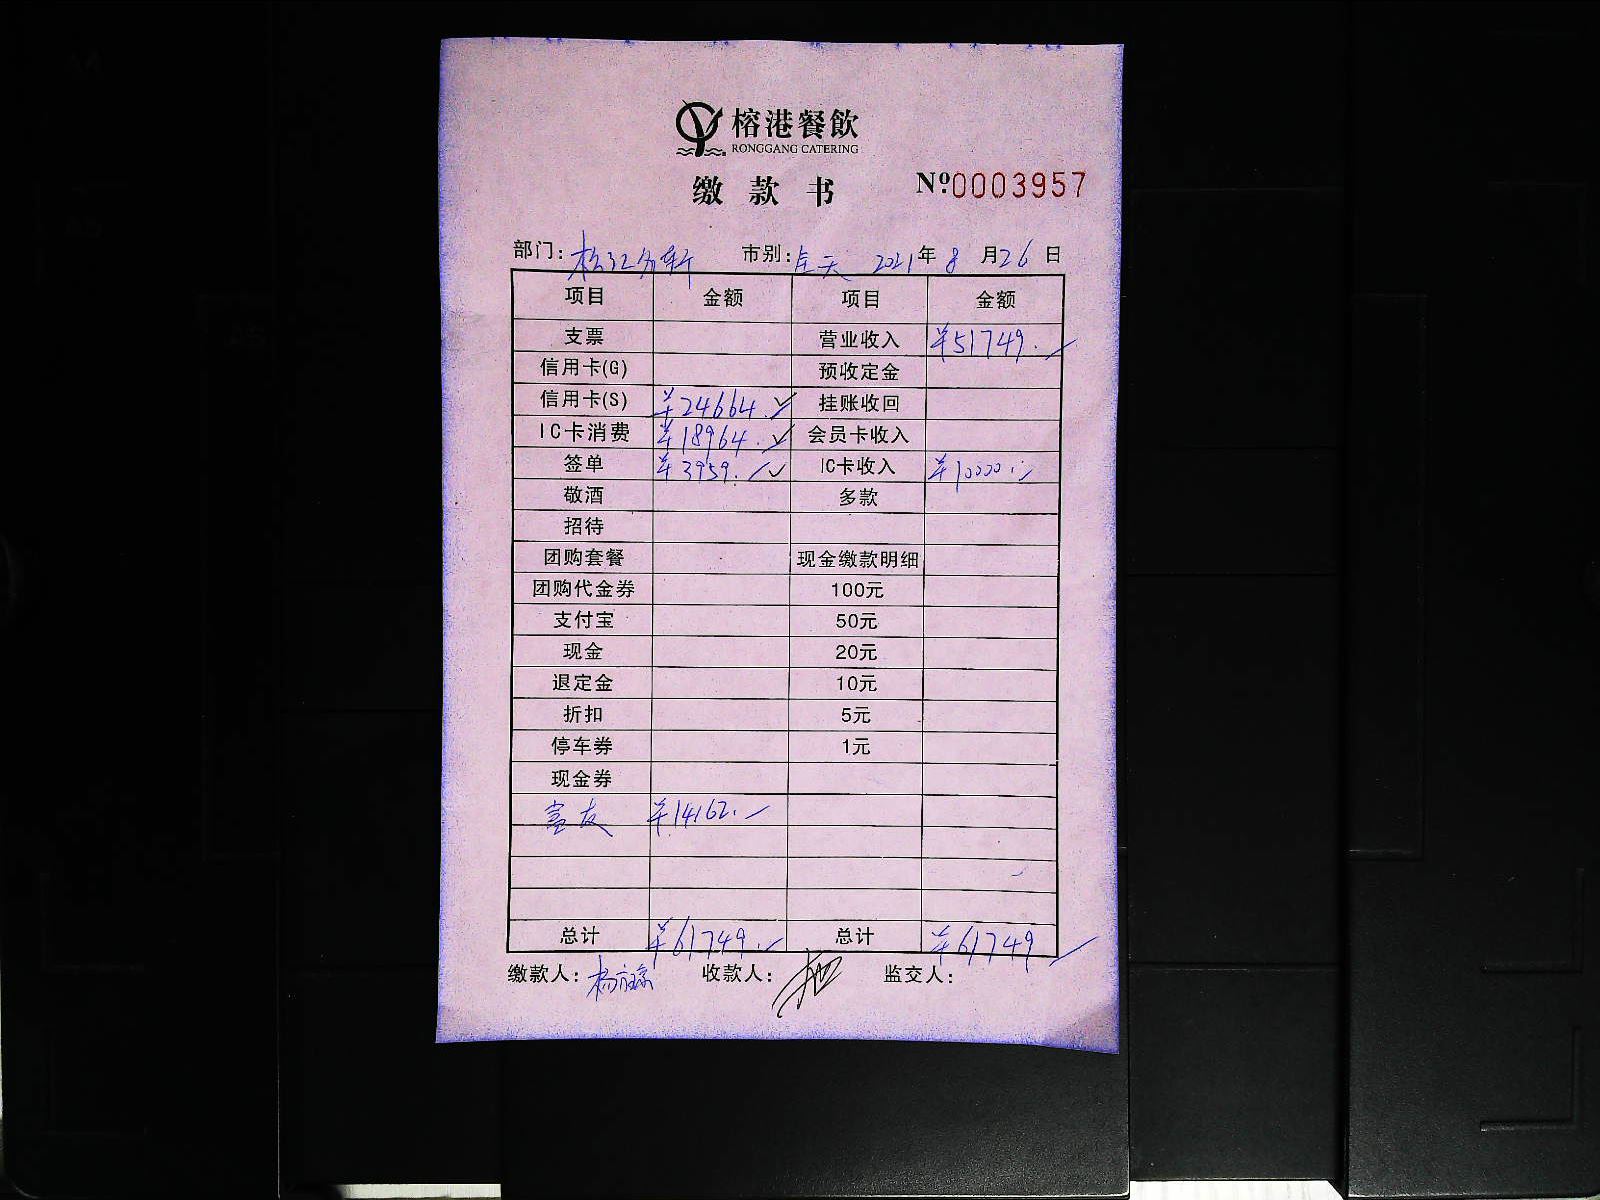 榕港餐飲
RONGGANG CATERING
缴款书 №0003957
部门: 松江名轩 市别: 全天 2021年8月26日
项目 金额 项目 金额
支票 营业收入 ¥51749.
信用卡(G) 预收定金
信用卡(S) ¥24664. 挂账收回
IC卡消费 ¥18964. 会员卡收入
签单 ¥3959. IC卡收入 ¥10000.
敬酒 多款
招待
团购套餐 现金缴款明细
团购代金券 100元
支付宝 50元
现金 20元
退定金 10元
折扣 5元
停车券 1元
现金券
¥14162.
总计 ¥61749. 总计 ¥61749
缴款人: 收款人: 监交人: